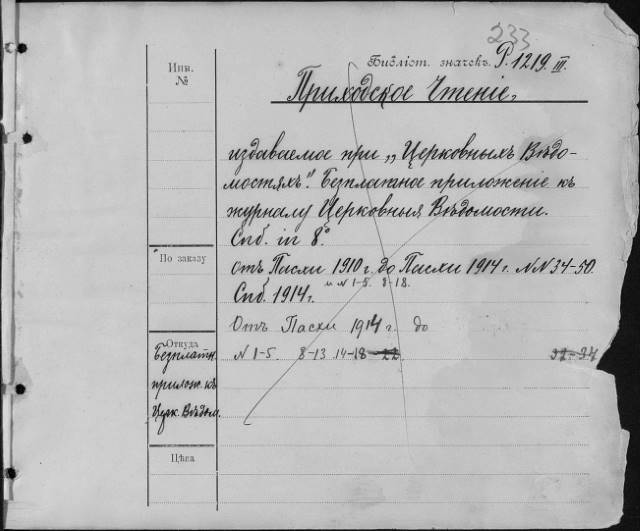 233
Библіот. значекъ Р. 1219. III.
Инв.
№
Приходское Чтеніе,
издаваемое при „Церковныхъ Вѣдо-
мостяхъ". Безплатное приложеніе къ
журналу Церковныя Вѣдомости.
Спб. in 8°
По заказу
отъ Пасхи 1910 г. до Пасхи 1914 г. NN 34-50.
и N 1-5. 8-18.
Спб. 1914 г.
Отъ Пасхи 1914 г. до
Откуда
N 1-5. 8-13 14-18-22. 32-34
Безплатн.
прилож. къ
Церк. Вѣдом.
Цѣна